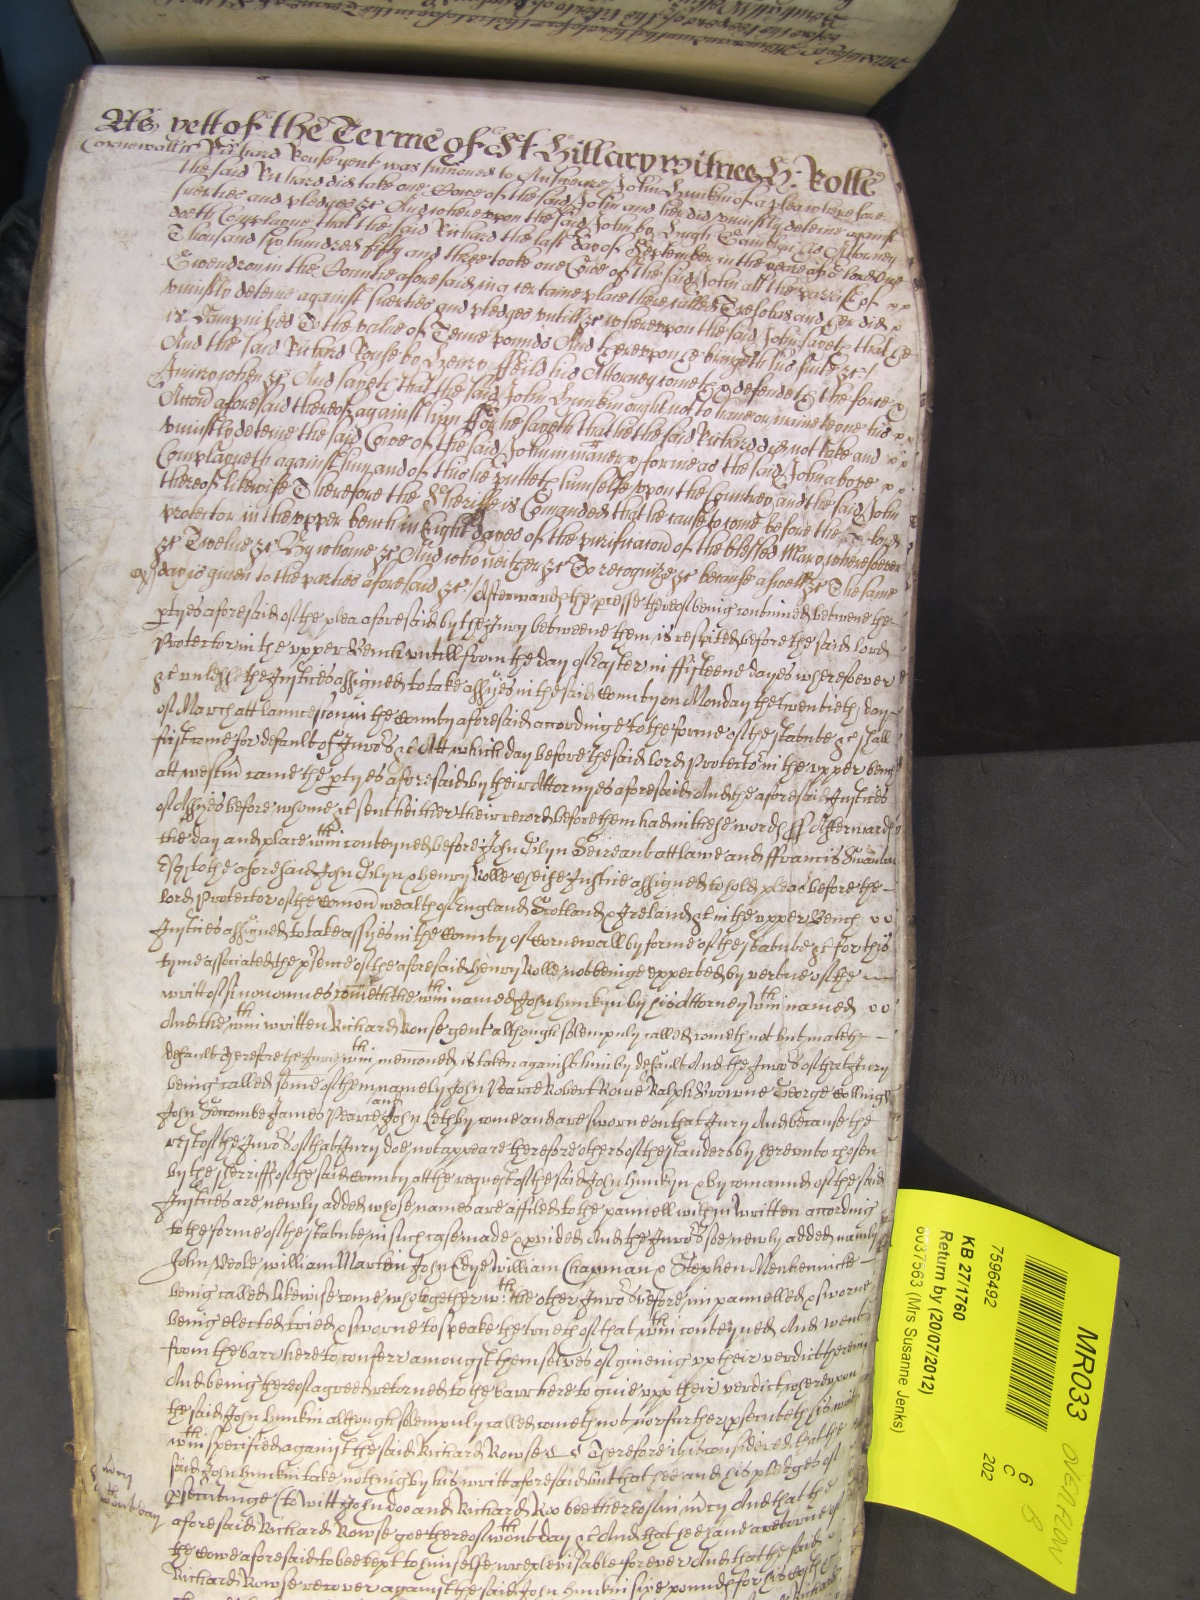 As yett of the Terme of St Hillary witnes H: Rolle
Cornewall ss Richard Rouse gent was sumoned to Answeare John Hunkin of a plea wherefore
the said Richard did take one Cowe of the said John and her did uniustly deteine against
suerties and pledges &c And whereuppon the said John by Hugh his Attorney
doeth Complayne that the said Richard the last day of September in the yeare of o lord One
Thousand six hundred fifty and three tooke one Cowe of the said John att the parrish of
Gwendron in the Countie aforesaid in a certaine place there called Tresobas and her did
uniustly deteine against suerties and pledges untill &c whereupon the said John sayeth that he
is dampnified To the value of Tenne pounds And thereuppon he bringeth his suite &c /
And the said Richard Rouse by Henry ffeild his Attorney cometh & defendeth the force &
Iniury when &c And sayeth that the said John Hunkin ought not to have or mainteyne his
Accon aforesaid thereof against him ffor he sayeth that he the said Richard did not take and
uniustly deteine the said Cowe of the said John in maner & forme as the said John above
Complayneth against him and of this he putteth himselfe uppon the Countrey and the said John
thereof likewise Therefore the Sheriffe is Comanded that he cause to come before the lord
protector in the upper bench in Eight dayes of the purificacon of the blessed Mary wheresoever
&c Twelve &c By whome &c And who neither &c To recognize &c because aswell &c The same
day is given to the parties aforesaid &c / Afterwards the processe thereof being continued betweene the
ptyes aforesaid of the plea aforesaid by the Jury betweene them is respited before the said lord
Protector in the upper Bench untill from the day of Easter in ffifteene dayes wheresoever
&c unles the Justices assigned to take assizes in the said County on Monday the twentieth day
of March att launceston in the County aforesaid accordinge to the forme of the statute &c shall
first come for default of Juro's &c Att which day before the said lord Protector in the upper bench
att westm came the ptyes aforesaid by their Attornyes aforesaid And the aforesaid Justices
of Assizes before whome &c sent hither their record before them had in these words ss Afterwards
the day and place wthin conteyned before John Glyn Serieant att lawe and ffrancis Swanton
Esqr to the aforesaid John Glyn & henry Rolle cheife Justice assigned to hold pleas before the
lord Protector of the Comon wealth of England Scotland & Ireland &c in the upper Bench
Justices assigned to take assizes in the County of Cornewall by forme of the statute &c for this
tyme associated the psence of the aforesaid henry Rolle not beinge expected by vertue of the
writt of si non omnes cometh the wthin named John hunkyn by his Attorney wthin named
And the wthin written Richard Rouse gent although solempnly called cometh not but maketh
default therefore the Jury wthin menconed is taken against him by default And the Juro's of that Jury
being called some of them namely John Pearce Robert Rowe Ralph Browne George Collings
John Soccombe James Pearce and John Lethby come and are sworne on that Jury And because the
rest of the Juro's of that Jury doe not appeare therefore others of the standers by hereunto chosen
by the sherriffe of the said County at the request of the said John hunkyn & by comannd of the said
Justices are newly added whose names are affiled to the pannell within written according
to the forme of the statute in such case made & pvided And the Juro's soe newly added namly
John Veale william Martin John Edye william Chapman & Stephen Menhennicke
being called likewise come who together wth the other Juro's before impannelled & sworne
being elected tried & sworne to speake the trueth of that wthin conteyned And went
from the barr here to conferr amongst themselves of giveinig upp their verdict therein
And being thereof agreed returned to the barr here to give upp their verdict whereupon
the said John hunkin although solempnly called cometh not nor further psecuteth his writt
wthin specified against the said Richard Rowse &c Therefore it is considered that the
said John hunkin take nothing by his writt aforesaid but that hee and his pledges of
psecutinge (to witt) John Doo and Richard Roo bee thereof in mcy And that the
aforesaid Richard Rowse goe thereof wthout day &c And that hee have a returne of
the cowe aforesaid to bee kept to himselfe irreplevisable for ever And that the said
Richard Rowse recover against the said John hunkin sixe pounds for his costs
MR033
OVERFLOW
7596492
6
C
202
KB 27/1760
Return by (20/07/2012)
8037563 (Mrs Susanne Jenks)